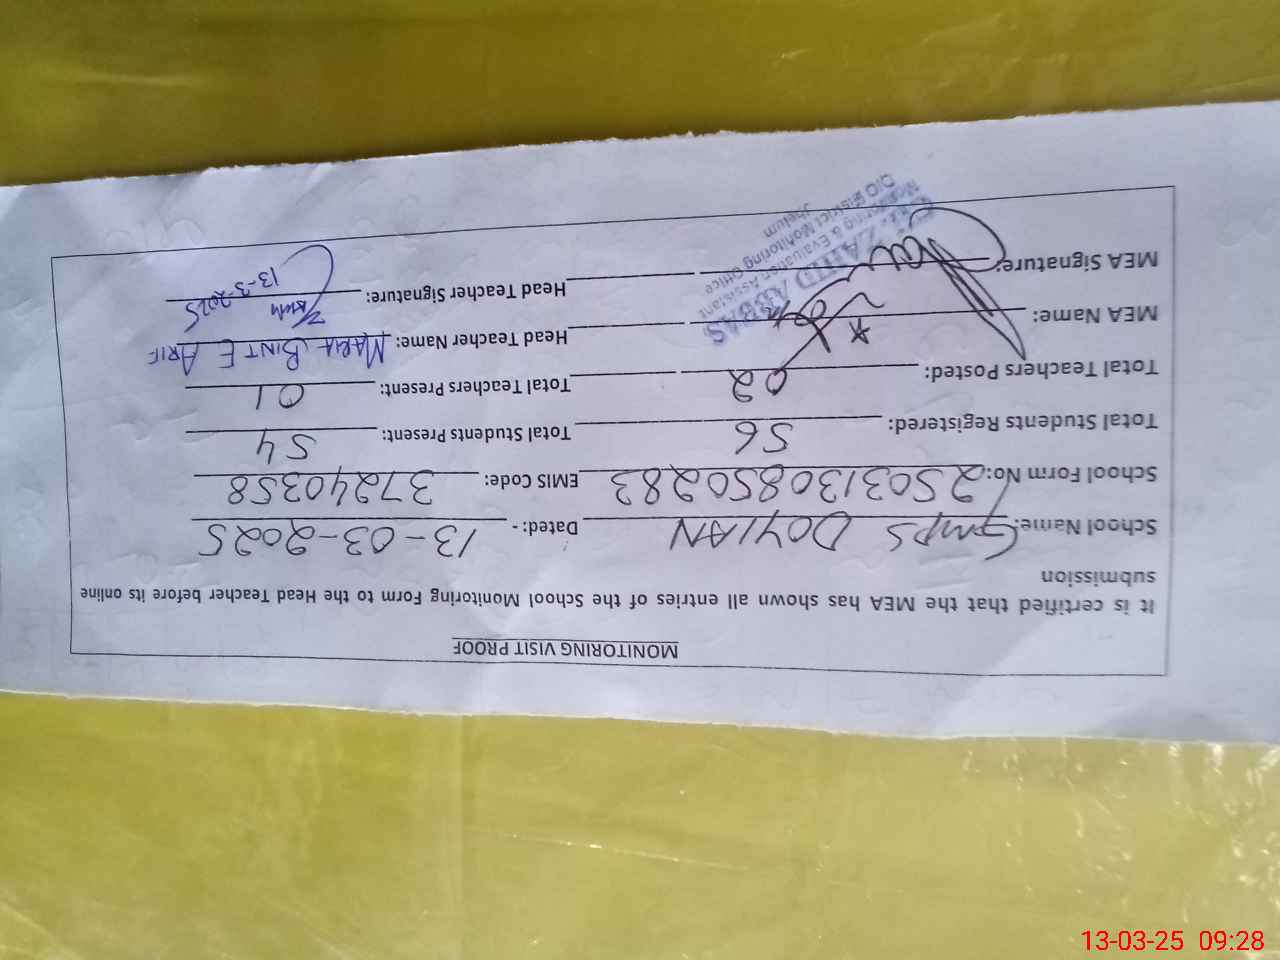 MONITORING VISIT PROOF
It is certified that the MEA has shown all entries of the School Monitoring Form to the Head Teacher before its online
submission
School Name: GMPS DOYIAN Dated: - 13-03-2025
School Form No: 2503130850283 EMIS Code: 37240358
Total Students Registered: 56 Total Students Present: 54
Total Teachers Posted: 02 Total Teachers Present: 01
MEA Name: Head Teacher Name: MARIA BINT E ARIF
MEA Signature: Head Teacher Signature:
13-3-2025
ABBAS
Monitoring & Evaluation Assistant
O/O District Monitoring Office
Jhelum
13-03-25 09:28